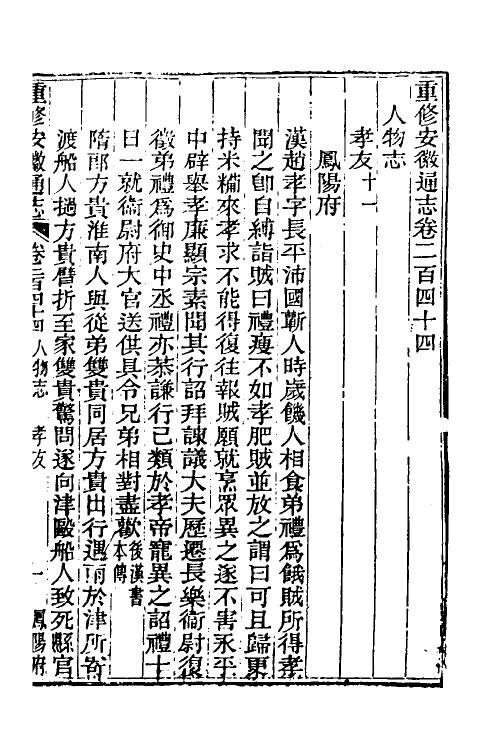 重修安徽通志卷二百四十四
人物志
孝友十一
鳳陽府
漢趙孝字長平沛國蘄人時歲饑人相食弟禮為餓賊所得孝
聞之卽自縛詣賊曰禮瘦不如孝肥賊並放之謂曰可且歸更
持米糒來孝求不能得復往報賊願就烹眾異之遂不害永平
中辟舉孝廉顯宗素聞其行詔拜諫議大夫歷遷長樂衞尉復
徵弟禮為御史中丞禮亦恭謙行己類於孝帝寵異之詔禮十
日一就衞尉府大官送供具令兄弟相對盡歡後漢書本傳
隋郎方貴淮南人與從弟雙貴同居方貴出行遇雨於津所寄
渡船人撾方貴臂折至家雙貴驚問遂向津毆船人致死縣官
重修安徽通志 卷二百四十四 人物志 孝友 一 鳳陽府